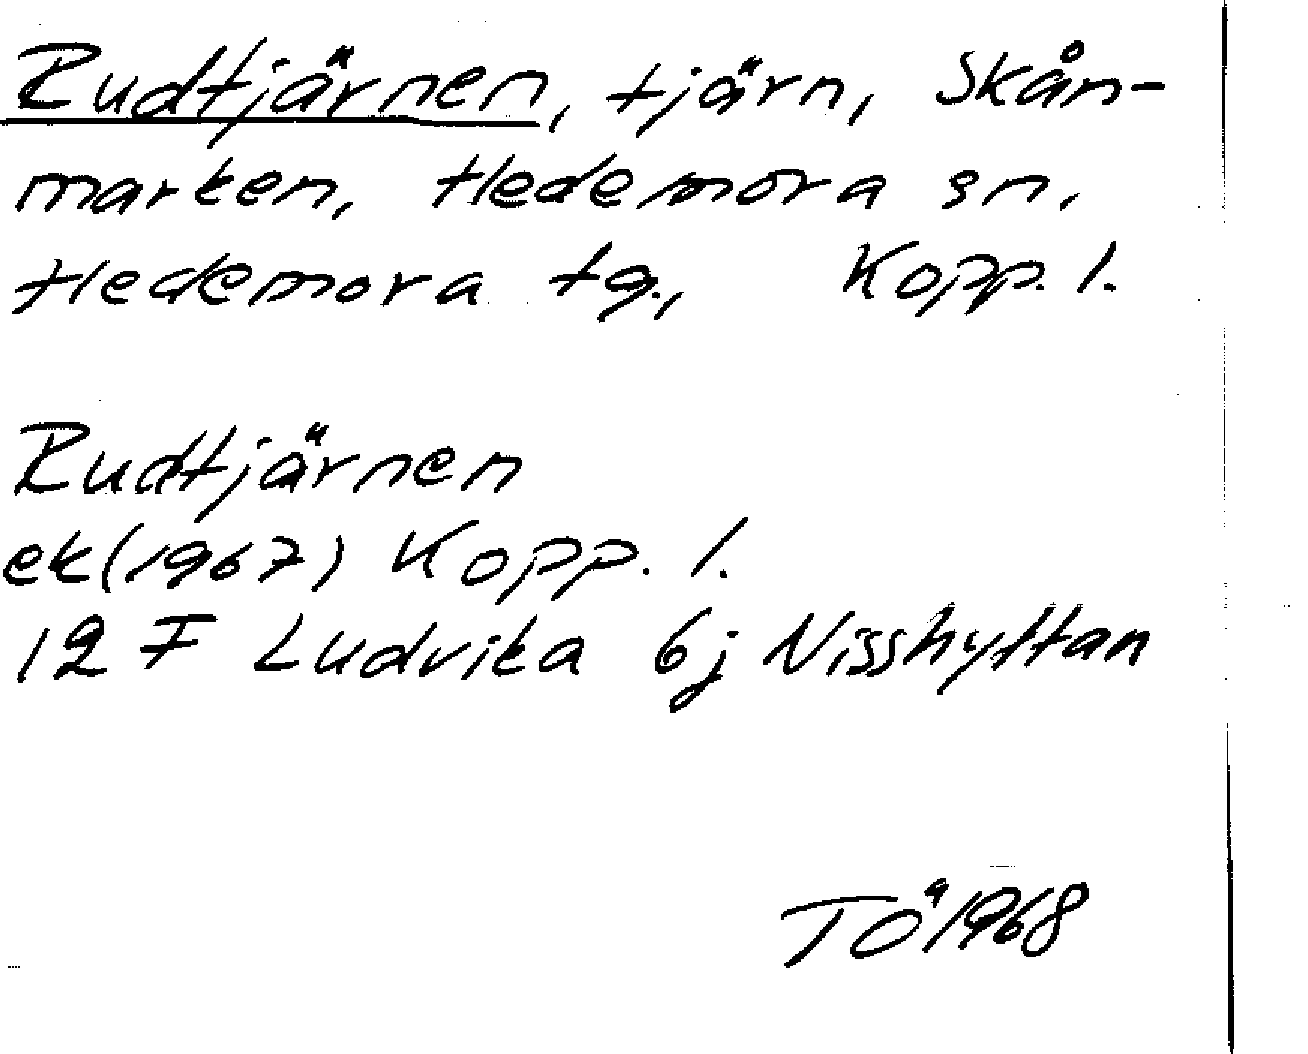 Rudtjärnen, tjärn, Skån-
marken, Hedemora sn,
Hedemora tg., Kopp. l.
Rudtjärnen
ek(1967) Kopp. l.
12 F Ludvika 6j Nisshyttan
TÖ 1968